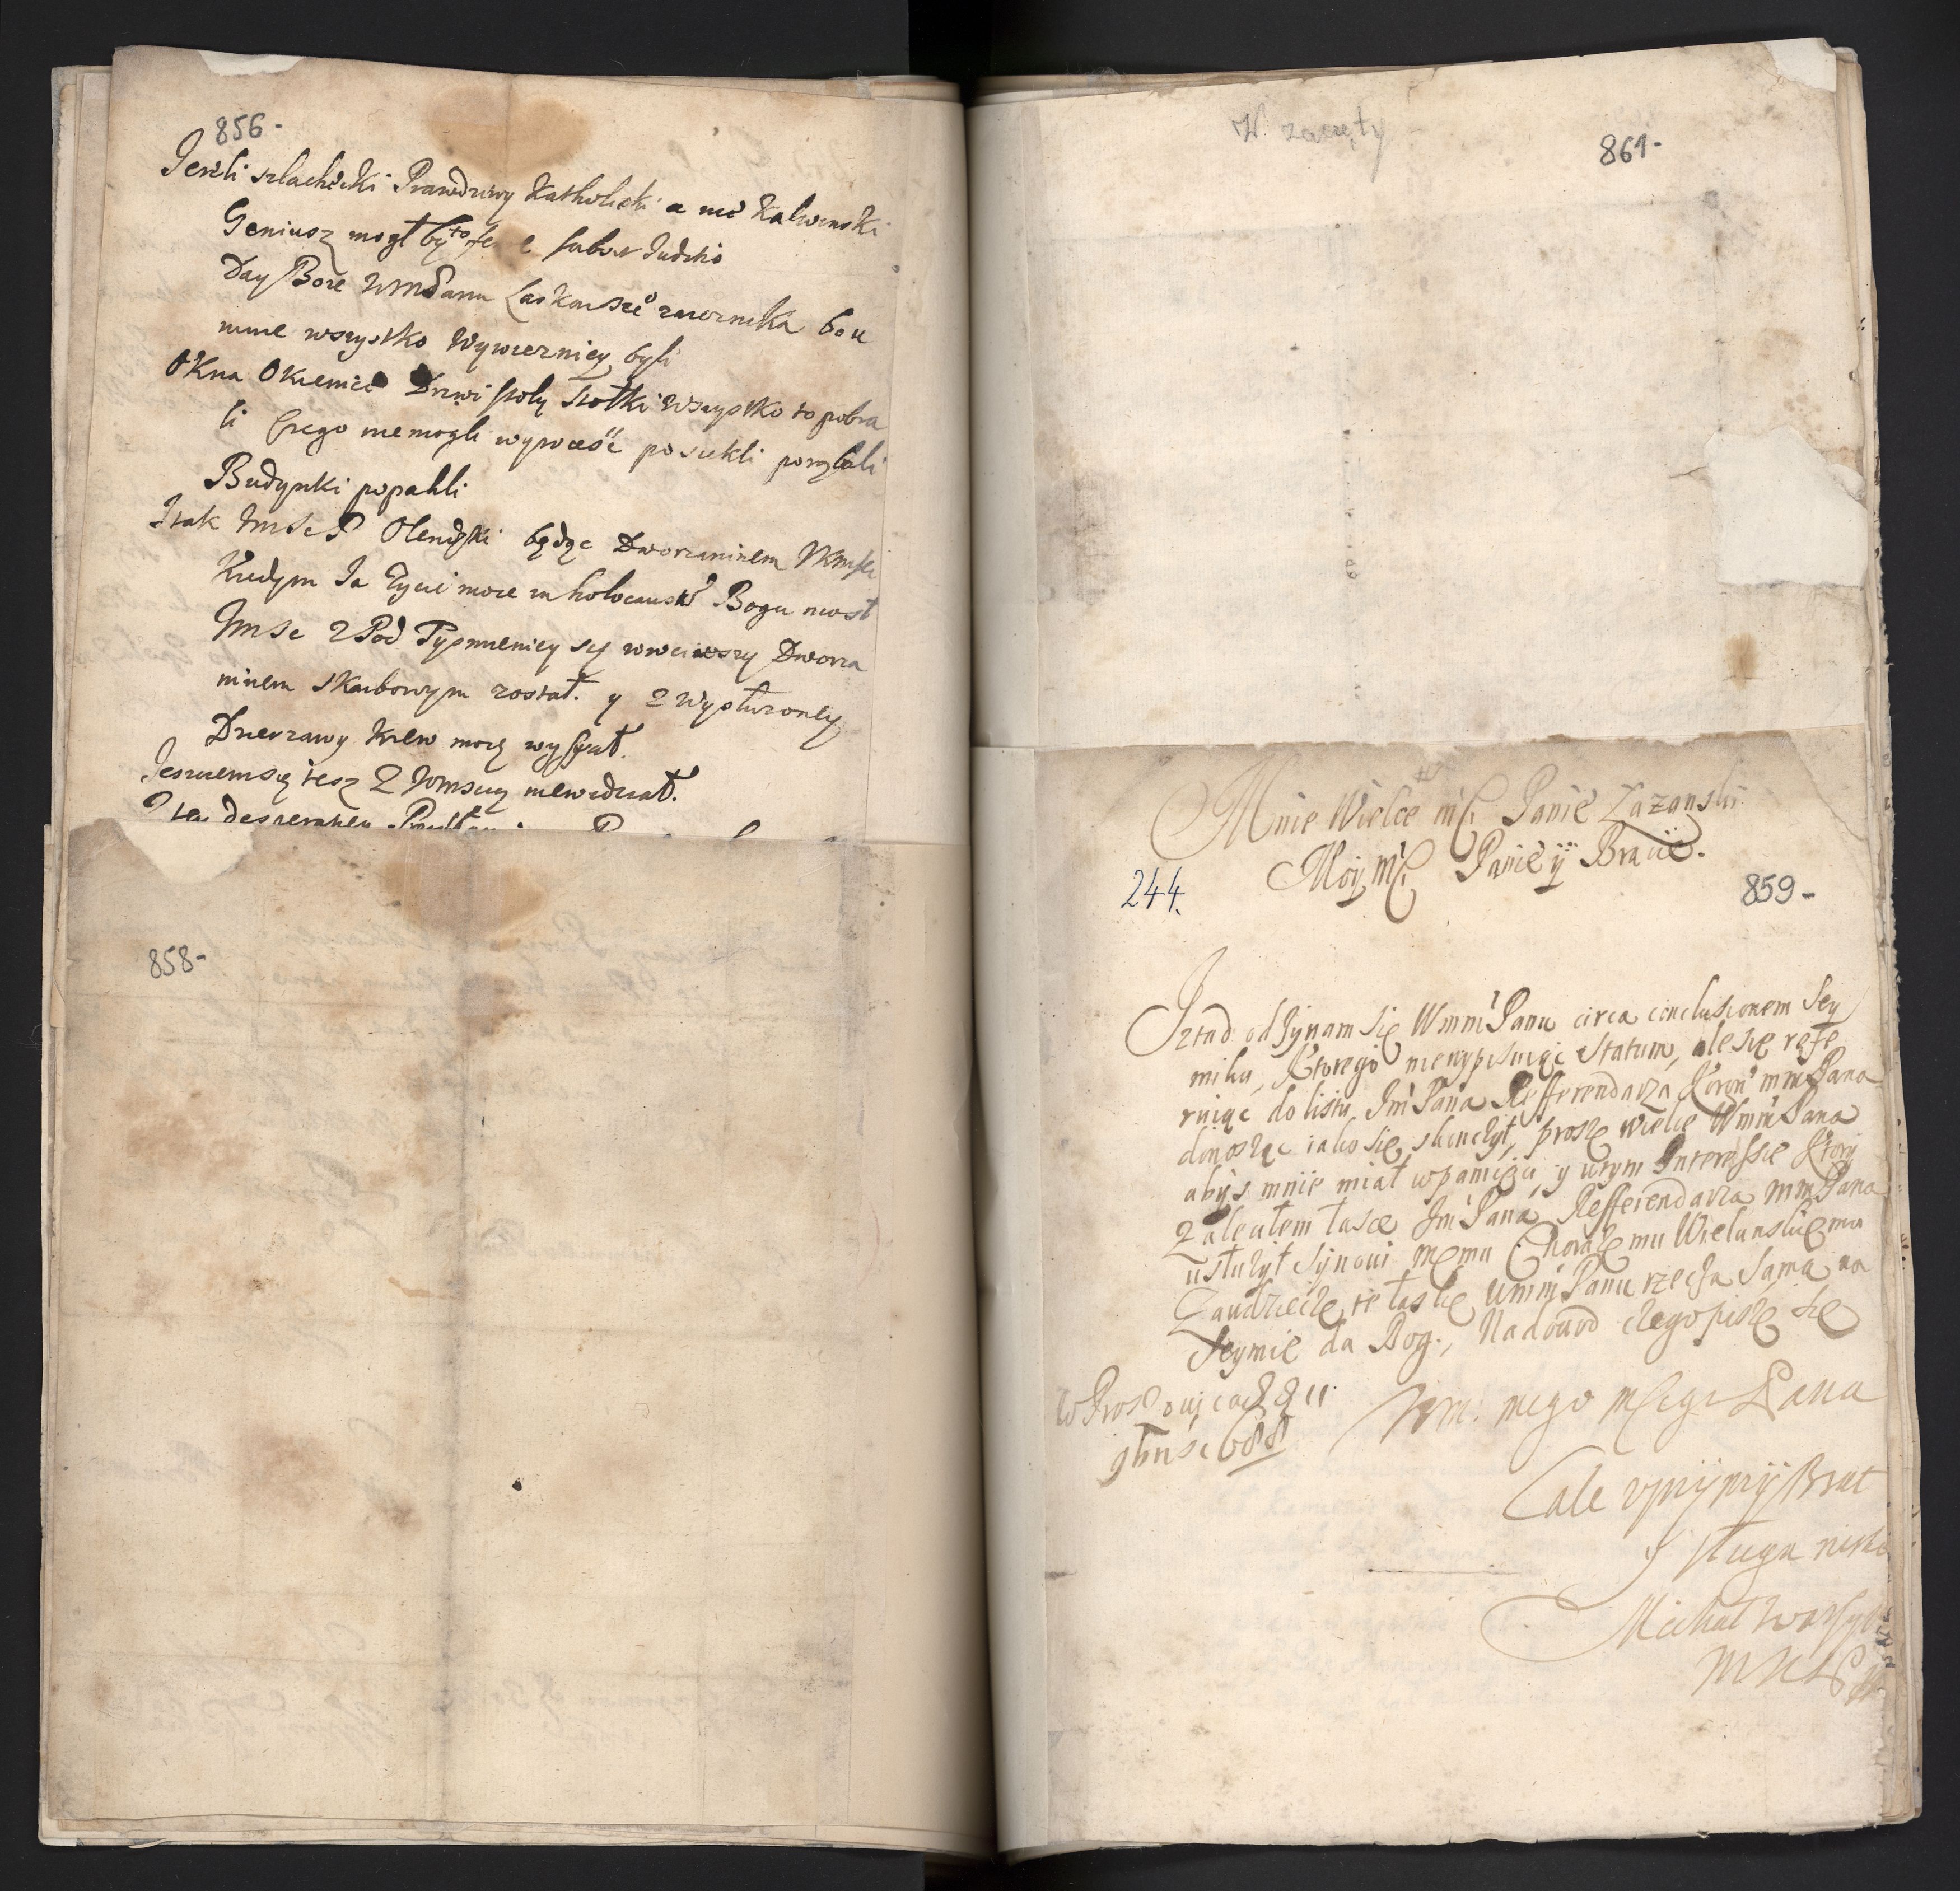 856-
Jeżeli szlachecki Prawdziwy Katholicki a nie Kalwinski
Geniusz mogł być to
Day Boze WmPanu Łaskawsze zwiernika bo u
mnie wszystko Wywiezniey byli
Okna Okienice Drzwi stoły stołki wszystko to pobra
li czego niemogli wywieść posiekli porąbali
Budynki popalili
J tak JmSc P będąc Dworzaninem
Kiedym Ja Zycie moie in holocaust Bogu niosł
JmSc z Pod Tysmienicy się wrociwszy Dworza
ninem skarbowym został. y z wysłuzoney
Dzierzawy krew moię wyssał.
Jeszczem się tesz z Jomscią niewidział.
858-
W. zaczęty
861-
Mnie Wielce mći Panie Łazanski
Moy mći Panie y Bracie.
244.
859-
Jztąd odzynam się WmmPanu circa conclusionem Sey
miku, Ktorego niewypisuiąc Statum, ale się refe
ruiąc do listu JmPana Refferendarza Koron mmPana
donosząc iako się skonczył, proszę wielce WmmPana
abys mnie miał w pamięci y w tym Interessie Ktory
zalecałem łasce JmPana Refferendarza mmPana
usłużył synowi memu Chorążemu Wielunskiemu
Zawdzieczę te łaskę WmmPanu rzeczą samą na
Seymie da Bog., Na dowod czego piszę się
W Proszowicach d 11
688
Wm. mego mscigo Pana
Cale uprzymy Brat
y sługa niski
Michał Warszyc